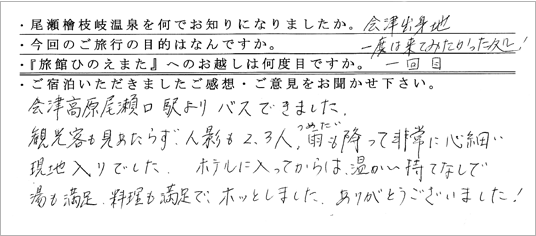 ・尾瀬檜枝岐温泉を何でお知りになりましたか。会津出身地
・今回のご旅行の目的はなんですか。一度は来てみたかった
・『旅館ひのえまた』へのお越しは何度目ですか。一回目
・ご宿泊いただきましたご感想・ご意見をお聞かせ下さい。
会津高原尾瀬口駅よりバスできました。
観光客も見あたらず、人影も2、3人、つめたい雨も降って非常に心細い
現地入りでした。ホテルに入ってからは、温かい持てなしで
湯も満足、料理も満足で、ホッとしました。ありがとうございました！